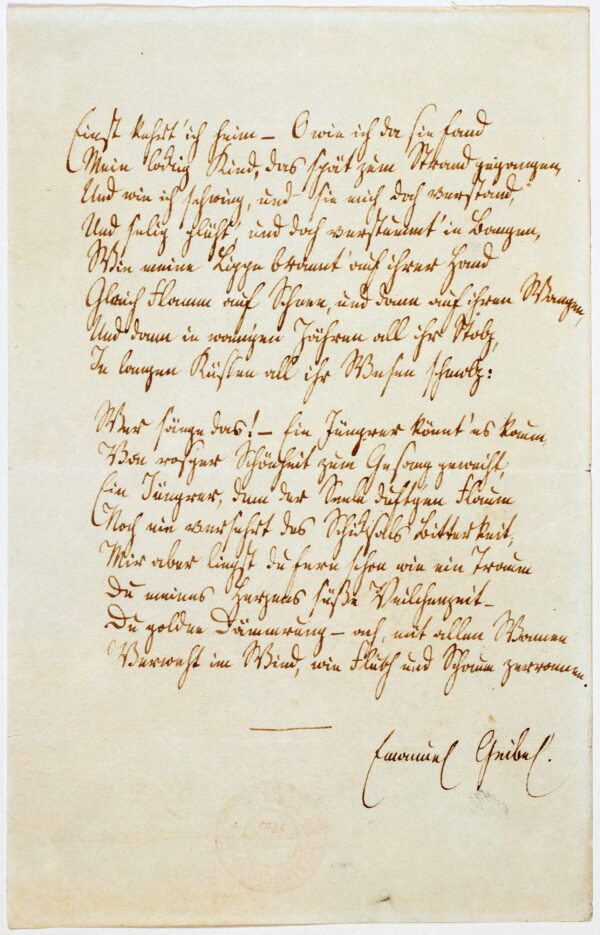 Einst kehrt' ich heim – O wie ich da sie fand
Mein lockig Kind, das spät zum Strand gegangen,
Und wie ich schwieg, und sie mich doch verstand,
Und selig glüht', und doch verstummt' in Bangen,
Wie meine Lippe brannt' auf ihrer Hand
Gleich Flamm auf Schnee, und dann auf ihren Wangen,
Und dann in wen'gen Zähren all ihr Stolz,
In langen Küssen all ihr Wesen schmolz:
Wer sänge das! – Ein Jüngrer könnt' es kaum
Von ros'ger Schönheit zum Gesang geweiht,
Ein Jüngrer, dem der Seele duft'gen Flaum
Noch nie versehrt des Schicksals Bitterkeit;
Mir aber liegst du fern schon wie ein Traum
Du meines Herzens süße Veilchenzeit –
Du goldne Dämmrung – ach, mit allen Wonnen
Verweht im Wind, wie Fluth und Schaum zerronnen.
Emanuel Geibel.